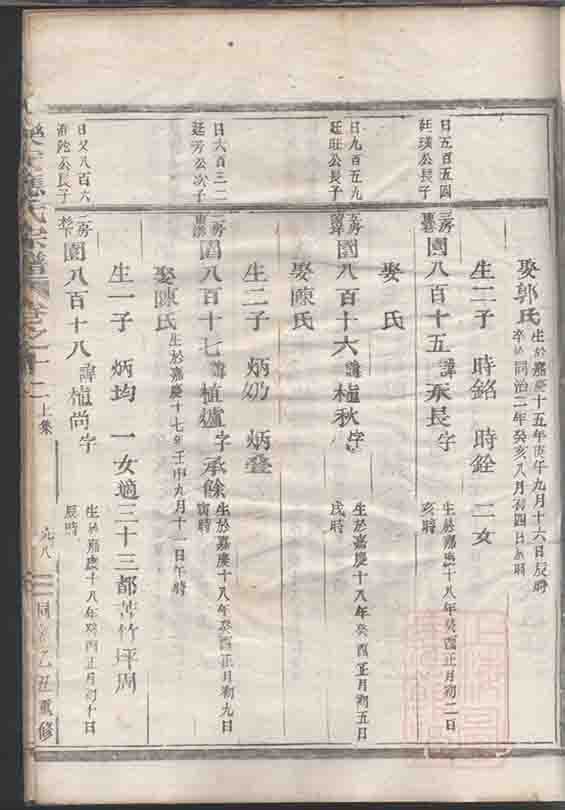 娶郭氏 生於嘉慶十五年庚午九月十六日辰時
卒於同治二年癸亥八月初四日辰時
生二子 時銘 時銓 二女
日五百五四
廷璞公長子
三房
園八百十五諱永長字
生於嘉慶十八年癸酉正月初二日
亥時
娶 氏
日九百五九
廷旺公長子
五房
園八百十六諱植秋字
生於嘉慶十八年癸酉正月初五日
戌時
娶陳氏
生二子 炳奶 炳叠
日六百三二
廷芳公次子
二房
園八百十七諱植遞字承餘
生於嘉慶十八年癸酉正月初九日
寅時
娶陳氏 生於嘉慶十七年壬申九月十一日午時
生一子 炳均 一女適三十三都苦竹坪周
日又八百六
公長子
二房
園八百十八諱植尚字
生於嘉慶十八年癸酉正月初十日
辰時
應氏宗譜 卷之 上集 同治乙丑重修